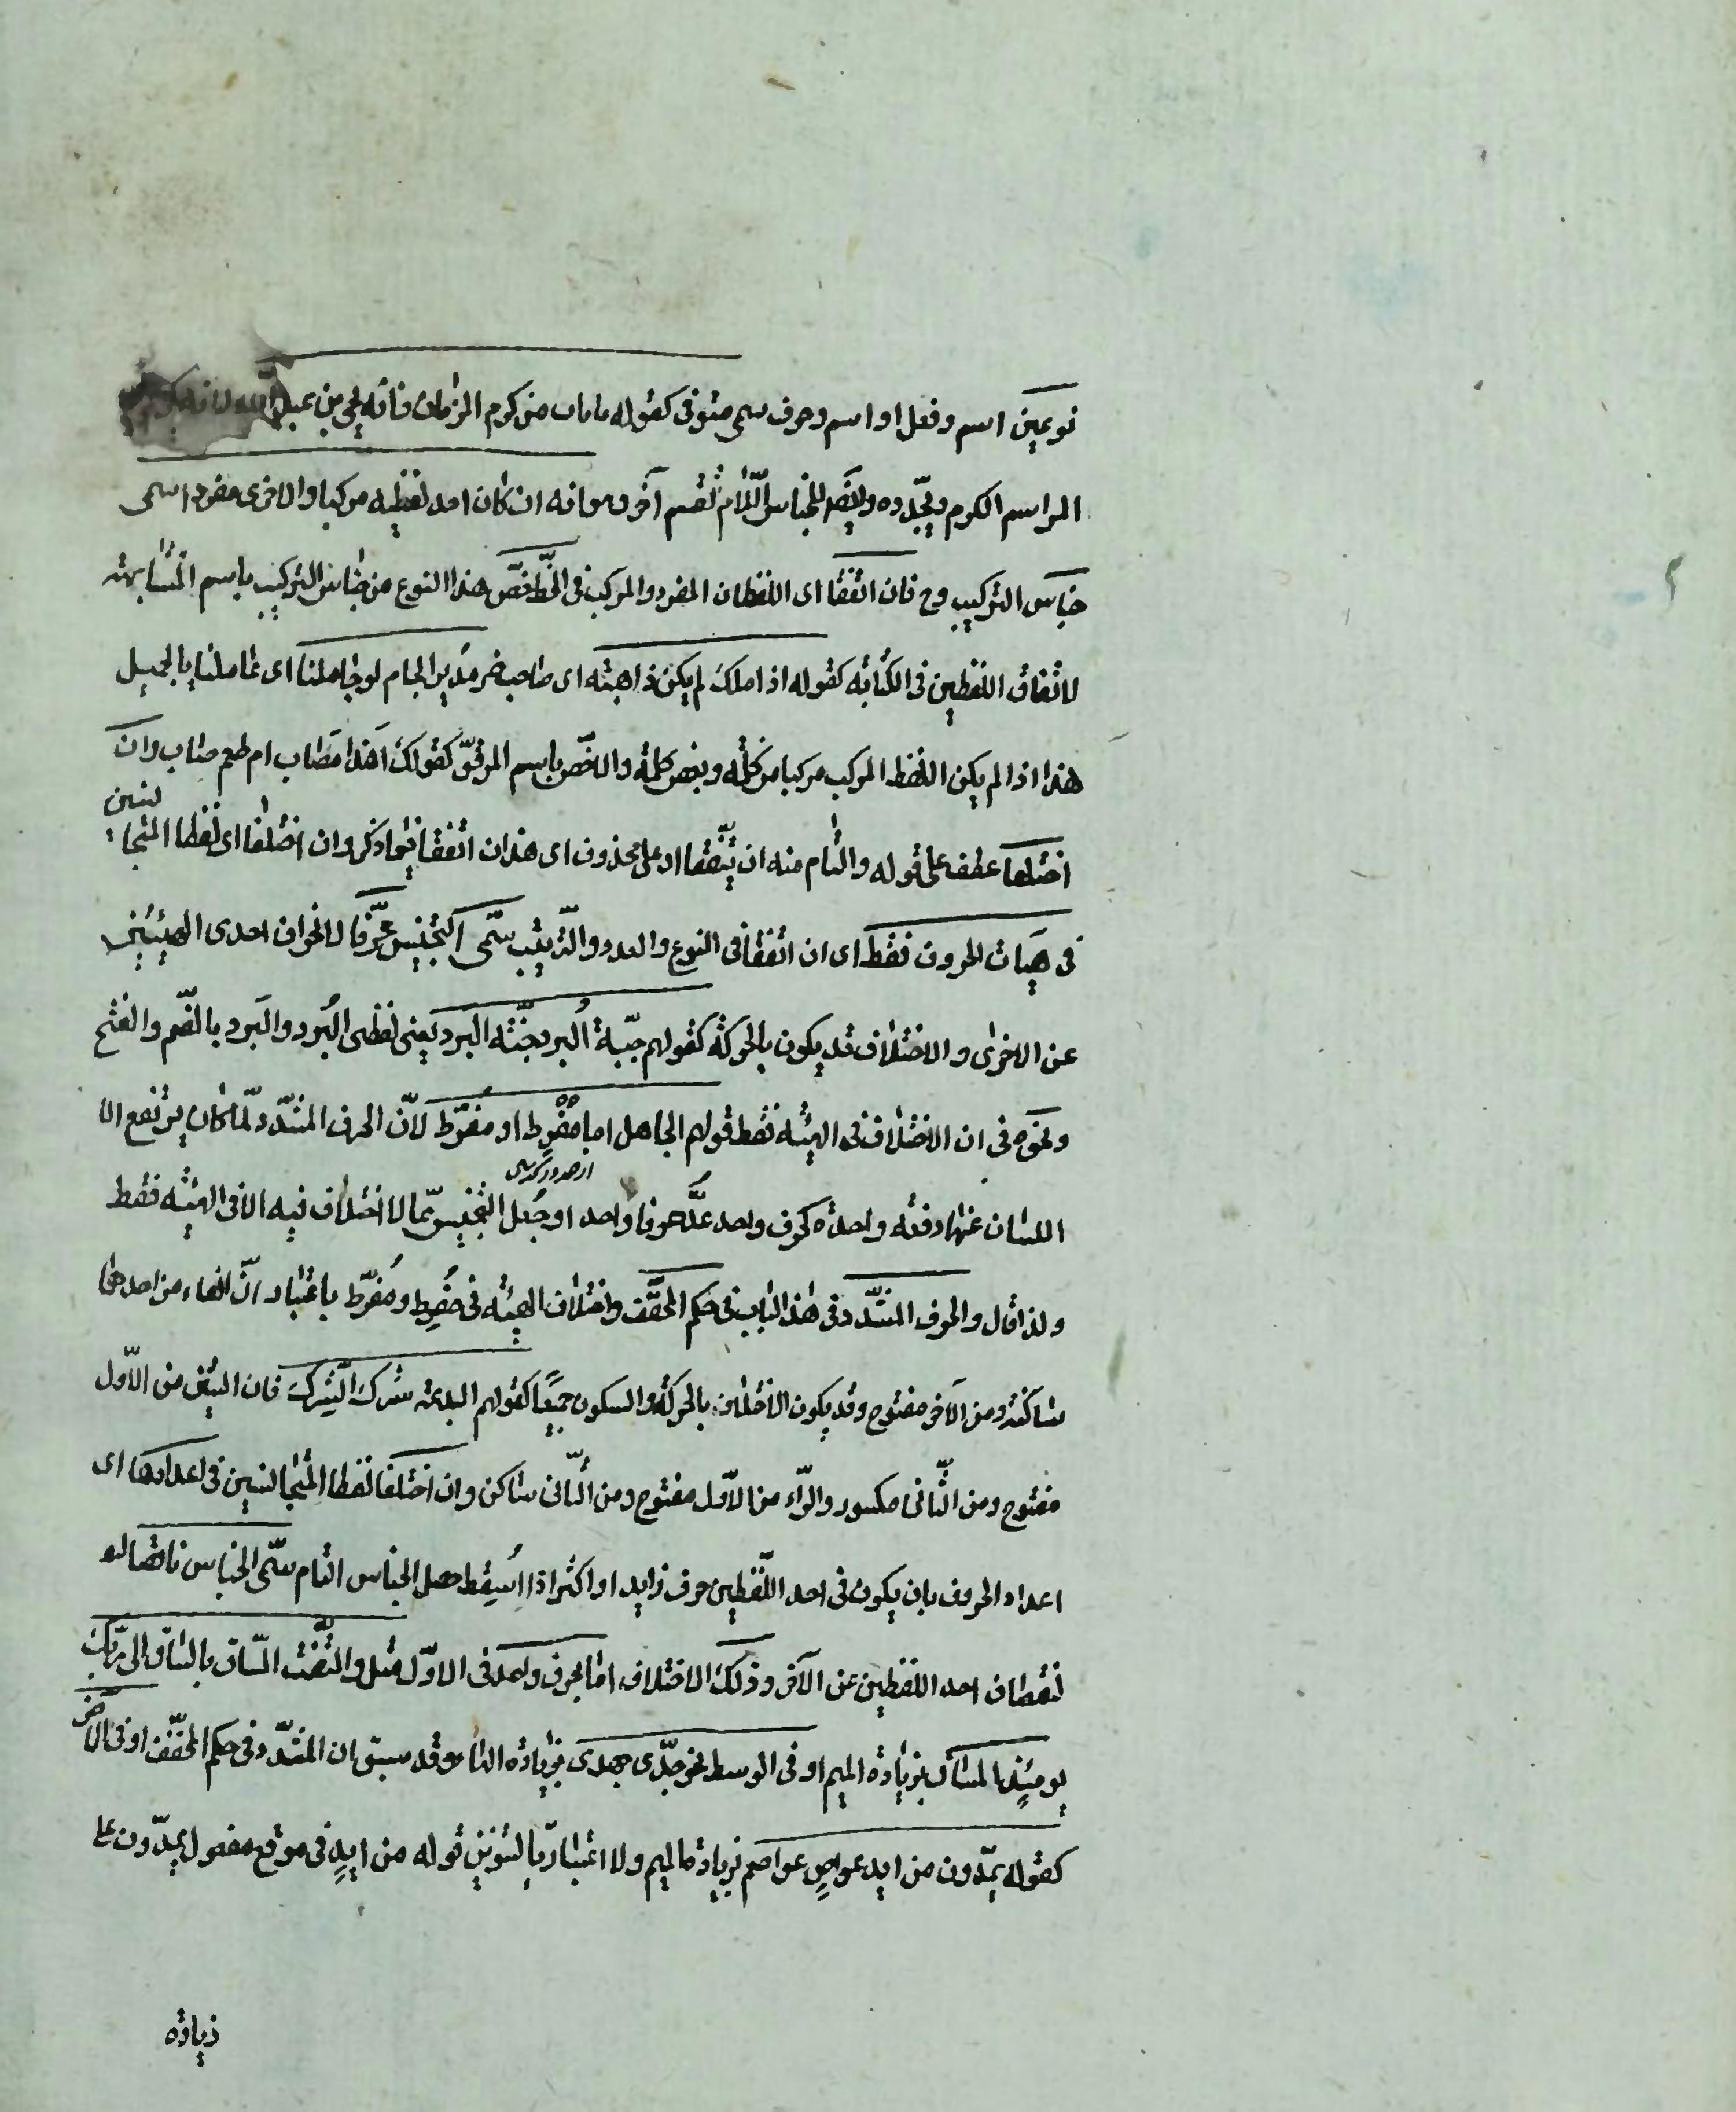 نوعين اسم وفعل او اسم وحرف سمى مستوفى كقوله ما مات من كرم الزمان فانه يحيى بن عبد الله لانه كريم
المراسم الكرم ويجدده وايضا للجناس التام تقسم آخر وهو انه ان كان احد لفظيه مركبا والاخرى مفردا سمى
جناس التركيب وح فان اتفقا اى اللفظان المفرد والمركب فى الخط خص هذا النوع من جناس التركيب باسم المتشابهة
لاتفاق اللفظين فى الكتابة كقوله اذا ملك لم يكن ذا هبة اى صاحب ضر مدير الجام لو جاملنا اى عاملنا بالجميل
هذا اذا لم يكن اللفظ المركب مركبا من كلمة وبعض كلمة والا خص باسم المرفوّ كقولك اهذا مصاب ام طعم صاب وان
اختلفا عطف على قوله والتام منه ان يتفقا او على محذوف اى هذان اتفقا فيما ذكر وان اختلفا اى لفظا المتجانسين
فى هيات الحروف فقط اى ان اتفقا فى النوع والعدد والترتيب سمّى التجنيس محرّفا لانحراف احدى الهيئتين
عن الاخرى والاختلاف قد يكون بالحركة كقولهم جبّة البُرد جنّة البَرد يعنى لفظى البُرد والبَرد بالضم والفتح
ونحوه فى ان الاختلاف فى الهيئة فقط قولهم الجاهل اما مُفْرِط او مُفَرّط لانّ الحرف المشدّد لمّا كان يرتفع الا
اللسان عنها دفعة واحدة كحرف واحد عُدّ حرفا واحد او جُعل التجنيس ممّا لا اختلاف فيه الا فى الهيئة فقط
ولذا قال والحرف المشدّد فى هذا الباب فى حكم المخفّف واختلاف الهيئة فى مُفرِط ومُفرّط باعتبار انّ الفاء من احدهما
ساكنة ومن الآخر مفتوح وقد يكون الاختلاف بالحركة والسكون جميعًا كقولهم البدعة شرك الشِرك فان الشين من الاوّل
مفتوح ومن الثّانى مكسور والرّاء من الاوّل مفتوح ومن الثّانى ساكن وان اختلفا لفظا المتجانسين فى اعدادها اى
اعداد الحروف بان يكون فى احد اللّفظين حرف زايد او اكثر اذا اسُقِط حصل الجناس التام سمّى الجناس ناقصا لو
لنقصان احد اللفظين عن الآخر وذلك الاختلاف امّا بحرف واحد فى الاوّل مثل والتفّت السّاق بالسّاق الى ربّك
يومئذٍ المساق بزيادة الميم او فى الوسط نحو جدّى جهدى بزيادة الهاء وقد سبق ان المشدّد فى حكم المخفّف او فى الآخر
كقوله يمدّون من ايد عواصٍ عواصم بزيادة الميم ولا اعتبار بالتنوين قوله من ايدٍ فى موقع مفعول يمدّون على
زيادة